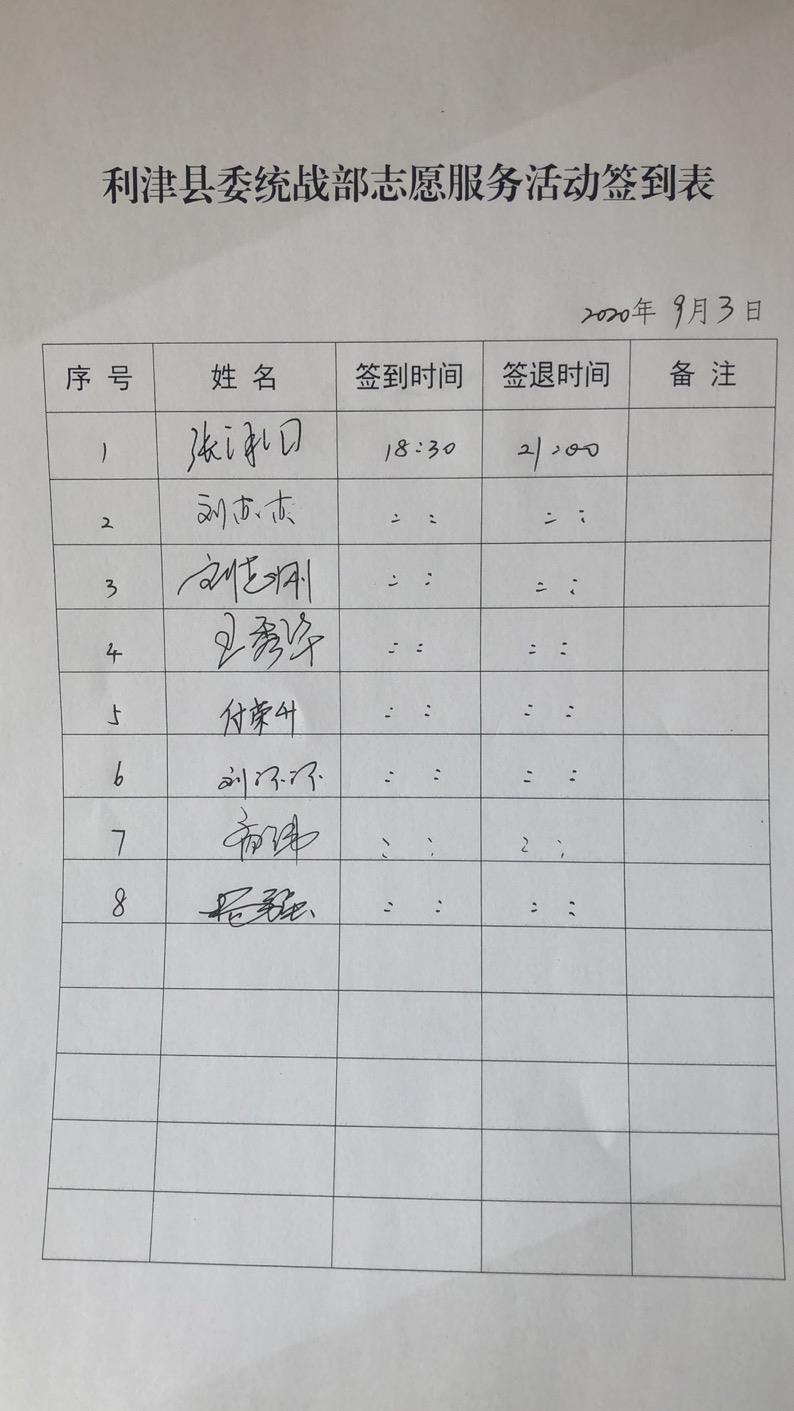 利津县委统战部志愿服务活动签到表
2020年 9月3日
序号 姓名 签到时间 签退时间 备注
1 18:30 21:00
2 刘杰杰 :: ::
3 刘志刚 :: ::
4 王秀华 :: ::
5 付荣升 :: ::
6 刘环环 :: ::
7 :: ::
8 :: ::